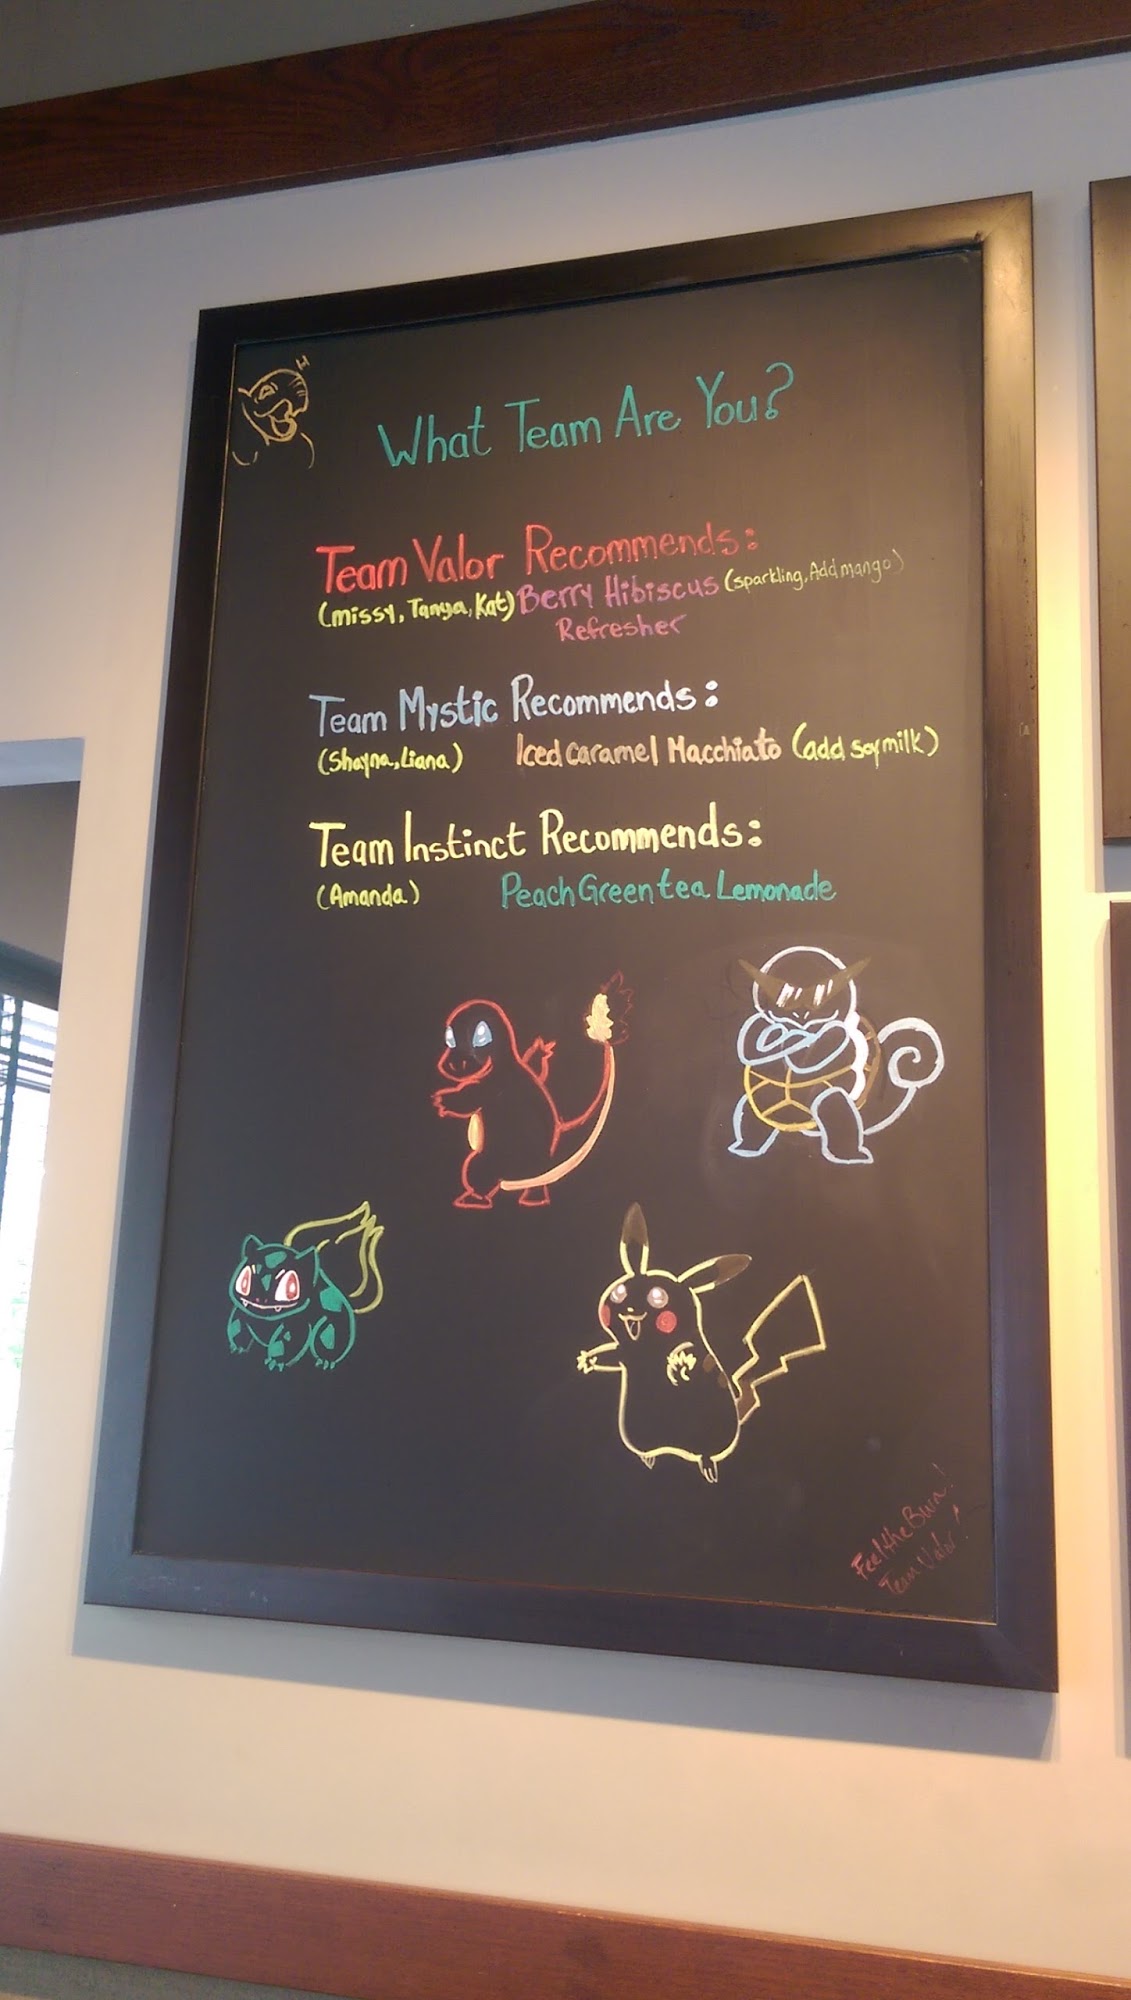 What Team Are You?
Team Valor Recommends:
(missy, Tanya, Kat) Berry Hibiscus (sparkling, Add mango)
Refresher
Team Mystic Recommends:
(Shayna, Liana) Iced caramel Macchiato (add soymilk)
Team Instinct Recommends:
(Amanda) Peach Green tea Lemonade
Feel the Burn!
Team Valor!